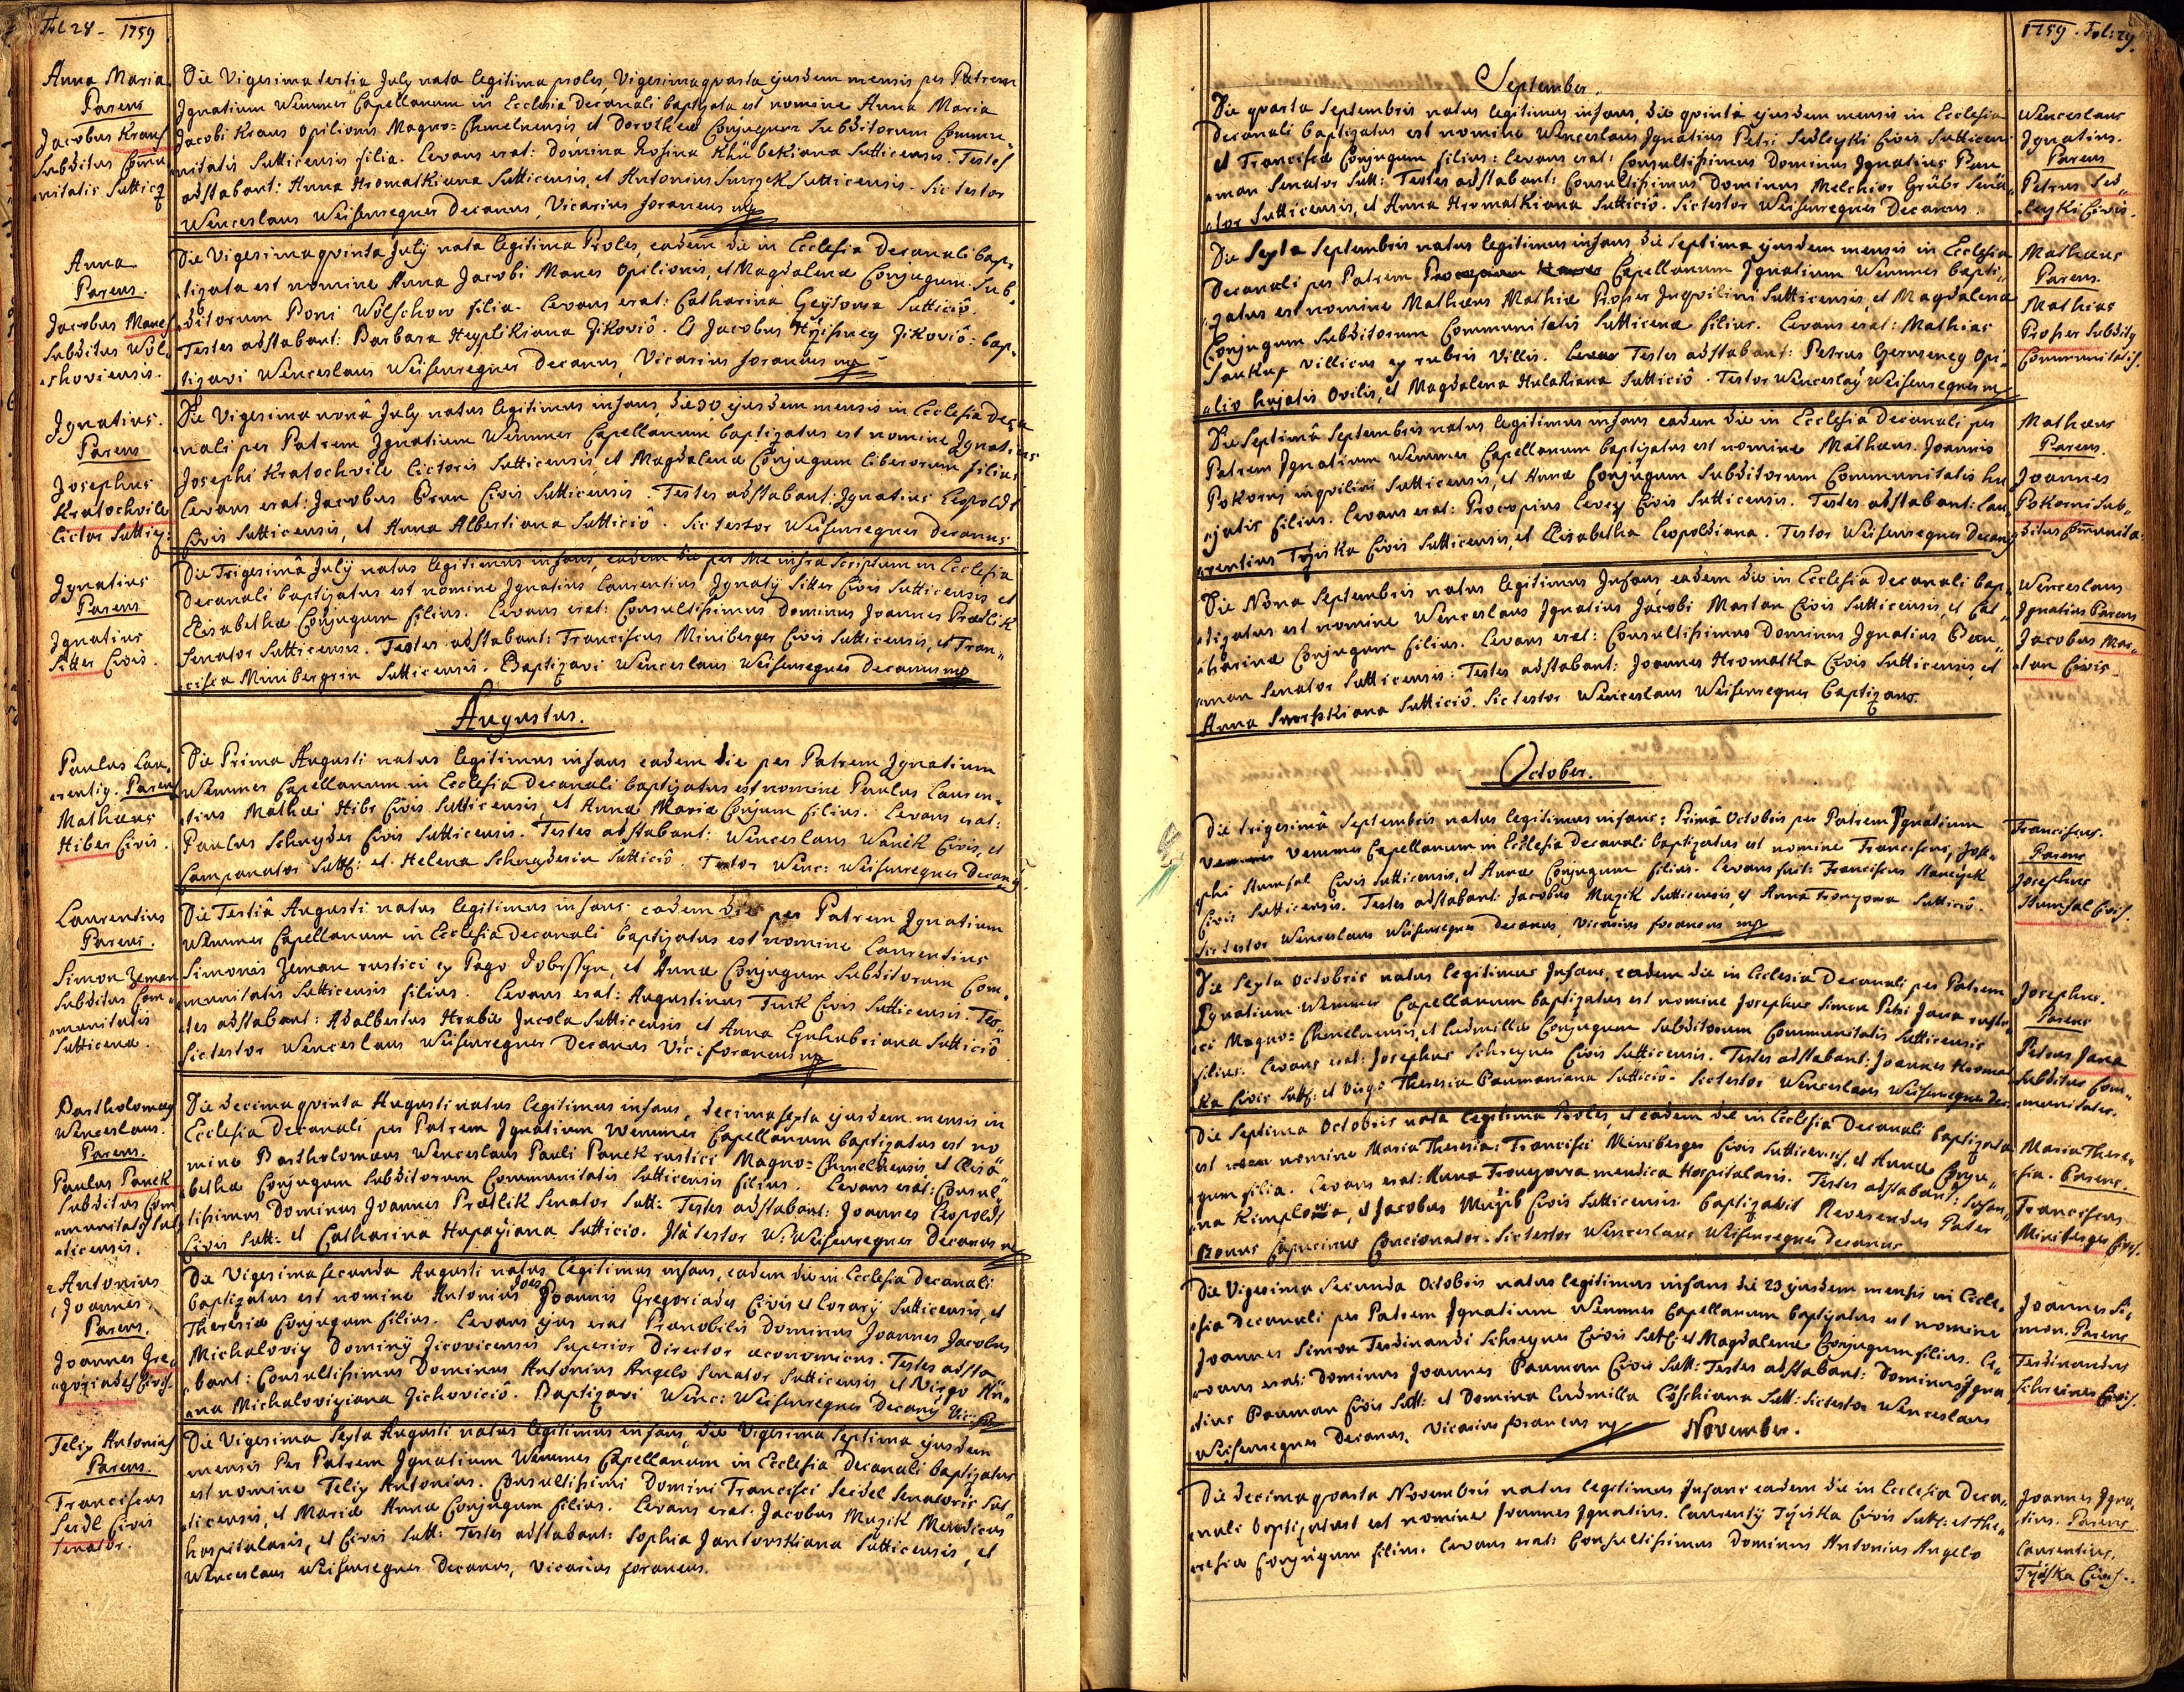 Fol 28 - 1759
Anna Maria
Parens
Jacobus Kraus
Subditus Commu
nitatis Sutticens
Die Vigesima tertia July nata legitima proles, Vigesimaqvarta ejusdem mensis per Patrem
Ignatium Wemmer Capellanum in Ecclesia Decanali baptizata est nomine Anna Maria
Jacobi Kraus opilionis Magno=Chmelnensis et Dorotheæ Conjugum Subditorum Commu„
nitatis Sutticensis filia. Levans erat: Domina Rosina Khübekiana Sutticensis. Testes
adstabant: Anna Hromatkiana Sutticensis, et Antonius Sutticensis. Sic testor
Wenceslaus Weisenregner Decanus, Vicarius foraneus mp
Anna
Parens.
Jacobus Manes
Subditus Wol„
shoviensis.
Die Vigesimaqvinta July nata legitima Proles, eadem die in Ecclesia Decanali bap„
tizata est nomine Anna Jacobi Manes Opilionis, et Magdalenæ Conjugum Sub„
ditorum Poni Wolschow filia. Levans erat: Catharina Geysowa Sutticiô.
Testes adstabant: Barbara Heyplikiana Zikoviô. Et Jacobus Zikoviô: bap„
tizavi Wenceslaus Weisenregner Decanus, Vicarius foraneus mp
Ignatius.
Parens
Josephus
Kratochvile
Lictor Suttic:
Die Vigesima nonâ July natus legitimus infans, die 30 ejusdem mensis in Ecclesia Deca
nali per Patrem Ignatium Wemmer Capellanum baptizatus est nomine Ignatius
Josephi Kratochvile Lictoris Sutticensis et Magdalenæ Conjugum liberorum filius
Levans erat: Jacobus Brun Civis Sutticensis. Testes adstabant: Ignatius Leopoldt
Civis Sutticensis, et Anna Albertiana Sutticiô. Sic testor Weisenregner Decanus
Ignatius
Parens
Ignatius
Sitter Civis.
Die Trigesimâ July natus legitimus infans, eadem die per Me infra Scriptum in Ecclesia
Decanali baptizatus est nomine Ignatius Laurentius Ignatÿ Sitter Civis Sutticensis et
Elisabethæ Conjugum filius. Levans erat: Consultissimus Dominus Joannes Prædlik
Senator Sutticensis. Testes adstabant: Franciscus Miniberger Civis Sutticensis, et Fran„
cisca Minibergrin Sutticensis. Baptizavi Wenceslaus Weisenregner Decanus mp
Augustus.
Paulus Lau„
rentig. Parens
Mathæus
Hiber Civis.
Die Prima Augusti natus legitimus infans eadem die per Patrem Ignatium
Wemmer Capellanum in Ecclesia Decanali baptizatus est nomine Paulus Lauren„
tius Mathæi Hibr Civis Sutticensis, et Annæ Mariæ Conjum filius. Levans erat:
Paulus Schneyder Civis Sutticensis. Testes adstabant: Wenceslaus Wanêk Civis, et
Campanator Sutt: et Helena Schneyderin Sutticiô. Testor Wenc: Weisenregner Decanus
Laurentius
Parens.
Simon Zeman
Subditus Com„
munitatis
Sutticenæ.
Die Tertiâ Augusti natus legitimus infans, eadem die per Patrem Ignatium
Wemmer Capellanum in Ecclesia Decanali baptizatus est nomine Laurentius
Simonis Zeman rustici ex Pago Dobrssyn, et Annæ Conjugum Subditorum Com„
munitatis Sutticensis filius. Levans erat: Augustinus Turk Civis Sutticensis. Tes„
tes adstabant: Adalbertus Hrabie Incola Sutticensis et Anna Sutticiô
Sic testor Wenceslaus Weisenregner Decanus Vic: foraneus mp
Bartholomæg
Wenceslaus.
Parens.
Paulus Panek
Subditus Com
munitatis Sut
ticensis.
Die decimaqvinta Augusti natus legitimus infans, decimasexta ejusdem mensis in
Ecclesia Decanali per Patrem Ignatium Wemmer Capellanum baptizatus est no
mine Bartholomæus Wenceslaus Pauli Panek rustici Magno=Chmelnensis et Elisa
bethæ Conjugum Subditorum Communitatis Sutticensis filius. Levans erat: Consul„
tissimus Dominus Joannes Prædlik Senator Sutt: Testes adstabant: Joannes Leopoldt
Civis Sutt: et Catharina Sutticio. Ita testor W: Weisenregner Decanus mp
Antonius
Joannes
Parens.
Joannes Gre„
goriades Civis.
Die Vigesima secunda Augusti natus legitimus infans, eadem die in Ecclesia Decanali
baptizatus est nomine Antonius Joes Joannis Gregoriades Civis et Sutticensis, et
Theresiæ Conjugum filius. Levans ejus erat Prænobilis Dominus Joannes Jacobus
Michalovig Dominÿ Zicovicensis Superior Director œconomicus. Testes adsta„
bant: Consultissimus Dominus Antonius Angelo Senator Sutticensis et Virgo An„
na Michalovigiana Zichoviciô. Baptizavi Wenc: Weisenregner Decang Vic: mp
Felix Antonius
Parens.
Franciscus
Seidl Civis
Senator.
Die Vigesima Sexta Augusti natus legitimus infans, die Vigesima Septima ejusdem
mensis Per Patrem Ignatium Wemmer Capellanum in Ecclesia Decanali baptizatus
est nomine Felix Antonius. Consultissimi Domini Francisci Seidel Senatoris Sut„
ticensis, et Mariæ Annæ Conjugum filius. Levans erat: Jacobus Muzik Mendicus
hospitalaris, et Civis Sutt: Testes adstabant: Sophia Jantovskiana Sutticensis, et
Wenceslaus Weisenregner Decanus, Vicarius foraneus.
1759. Fol: 29.
September.
Die qvarta Septembris natus legitimus infans, die qvinta ejusdem mensis in Ecclesia
Decanali baptizatus est nomine Wenceslaus Ignatius Petri Sedleyki Civis Sutticen:
et Franciscæ Conjugum filius: levans erat: Consultissimus Dominus Ignatius Pau
man Senator Sutt: Testes adstabant: Consultissimus Dominus Melchior Grübr Sena„
tor Sutticensis, et Anna Hromatkiana Sutticiô. Sic testor Weisenregner Decanus.
Wenceslaus
Ignatius.
Parens
Petrus Sed„
leyki Civis.
Die Sexta Septembris natus legitimus infans die Septima ejusdem mensis in Ecclesia
Decanali per Patrem Capellanum Ignatium Wemmer bapti„
zatus est nomine Mathæus Mathiæ Proser Inqvilini Sutticensis, et Magdalena
Conjugum Subditorum Communitatis Sutticenæ filius. Levans erat: Mathias
Saukup Villicus ex rubris Villis. Testes adstabant: Petrus Opi„
lio hujatis Ovilis, et Magdalena Hulakiana Sutticiô. Testor Wenceslaÿ Weisenregner mp
Mathæus
Parens.
Mathias
Proser Subditg
Communitatis.
Die Septimâ Septembris natus legitimus infans eadem die in Ecclesia Decanali per
Patrem Ignatium Wemmer Capellanum baptizatus est nomine Mathæus. Joannis
Pokorny inqvilini Sutticensis, et Annæ Conjugum Subditorum Communitatis hu
jatis filius. Levans erat: Procopius Levey Civis Sutticensis. Testes adstabant: Lau„
rentius Tÿrska Civis Sutticensis, et Elisabetha Leopoldiana. Testor Weisenregner Decang
Mathæus
Parens.
Joannes
Pokorni Sub„
ditus Communita:
Die Nona Septembris natus legitimus Infans, eadem die in Ecclesia Decanali bap„
tizatus est nomine Wenceslaus Ignatius Jacobi Martan Civis Sutticensis, et Cat„
harinæ Conjugum filius. Levans erat: Consultissimus Dominus Ignatius Bau„
man Senator Sutticensis: Testes adstabant: Joannes Hromatka Civis Sutticensis, et
Anna Sutticiô. Sic testor Wenceslaus Weisenregner baptizans.
Wenceslaus
Ignatius Parens
Jacobus Mar„
tan Civis.
October.
Die trigesimâ Septembris natus legitimus infans; Primâ Octobris per Patrem Ignatium
Vemmer Capellanum in Ecclesia Decanali baptizatus est nomine Franciscus, Jose„
phi Stumsal Civis Sutticensis, et Annæ Conjugum filius. Levans fuit: Franciscus
Civis Sutticensis. Testes adstabant: Jacobus Muzik Sutticensis, et Anna Froneyowa Sutticiô.
Sic testor Wenceslaus Weisenregner Decanus, Vicarius foraneus mp
Franciscus.
Parens
Josephus
Stumsal Civis.
Die Sexta Octobris natus legitimus Infans, eadem die in Ecclesia Decanali per Patrem
Ignatium Wemmer Capellanum baptizatus est nomine Josephus Simon Petri Jana rusti
ci Magno=Chmelnensis, et Ludmillæ Conjugum Subditorum Communitatis Sutticensis
filius. Levans erat: Josephus Schreyner Civis Sutticensis. Testes adstabant: Joannes Hromat
ka Civis Sutt: et Virgo Theresia Paumaniana Sutticiô. Sic testor Wenceslaus Weisenregner Dec:
Josephus.
Parens
Petrus Jana
Subditus Com„
munitatis.
Die Septima Octobris nata legitima Proles, et eadem die in Ecclesia Decanali baptizata
est nomine Maria Theresia: Francisci Miniberger Civis Sutticensis, et Annæ Conju„
gum filia. Levans erat: Anna Froneyowa mendica Hospitalaris. Testes adstabant: Sosan„
na Kimplowa, et Jacobus Muzib Civis Sutticensis. baptizavit Reverendus Pater
Bonus Capucinus Concionator. Sic testor Wenceslaus Weisenregner Decanus
Maria There„
sia. Parens.
Franciscus
Miniberger Civis.
Die Vigesima Secunda Octobris natus legitimus infans die 23 ejusdem mensis in Eccle„
sia Decanali per Patrem Ignatium Wemmer Capellanum baptizatus est nomine
Joannes Simon Ferdinandi Schreyner Civis Sutt: et Magdalenæ Conjugum filius. Le„
vans erat: Dominus Joannes Pauman Civis Sutt: Testes adstabant: Dominus Igna
tius Pauman Civis Sutt: et Domina Ludmilla Sutt: Sic testor Wenceslaus
Weisenregner Decanus, Vicarius foraneus mp
Joannes Si„
mon. Parens
Ferdinandus
Schreiner Civis.
November.
Die decimaqvarta Novembris natus legitimus Infans eadem die in Ecclesia Deca„
nali baptizatust est nomine Joannes Ignatius. Laurentÿ Tÿrska Civis Sutt: et The„
resiæ Conjugum filius. Levans erat: Consultissimus Dominus Antonius Angelo
Joannes Igna„
tius. Parens
Laurentius.
Tyrska Civis.